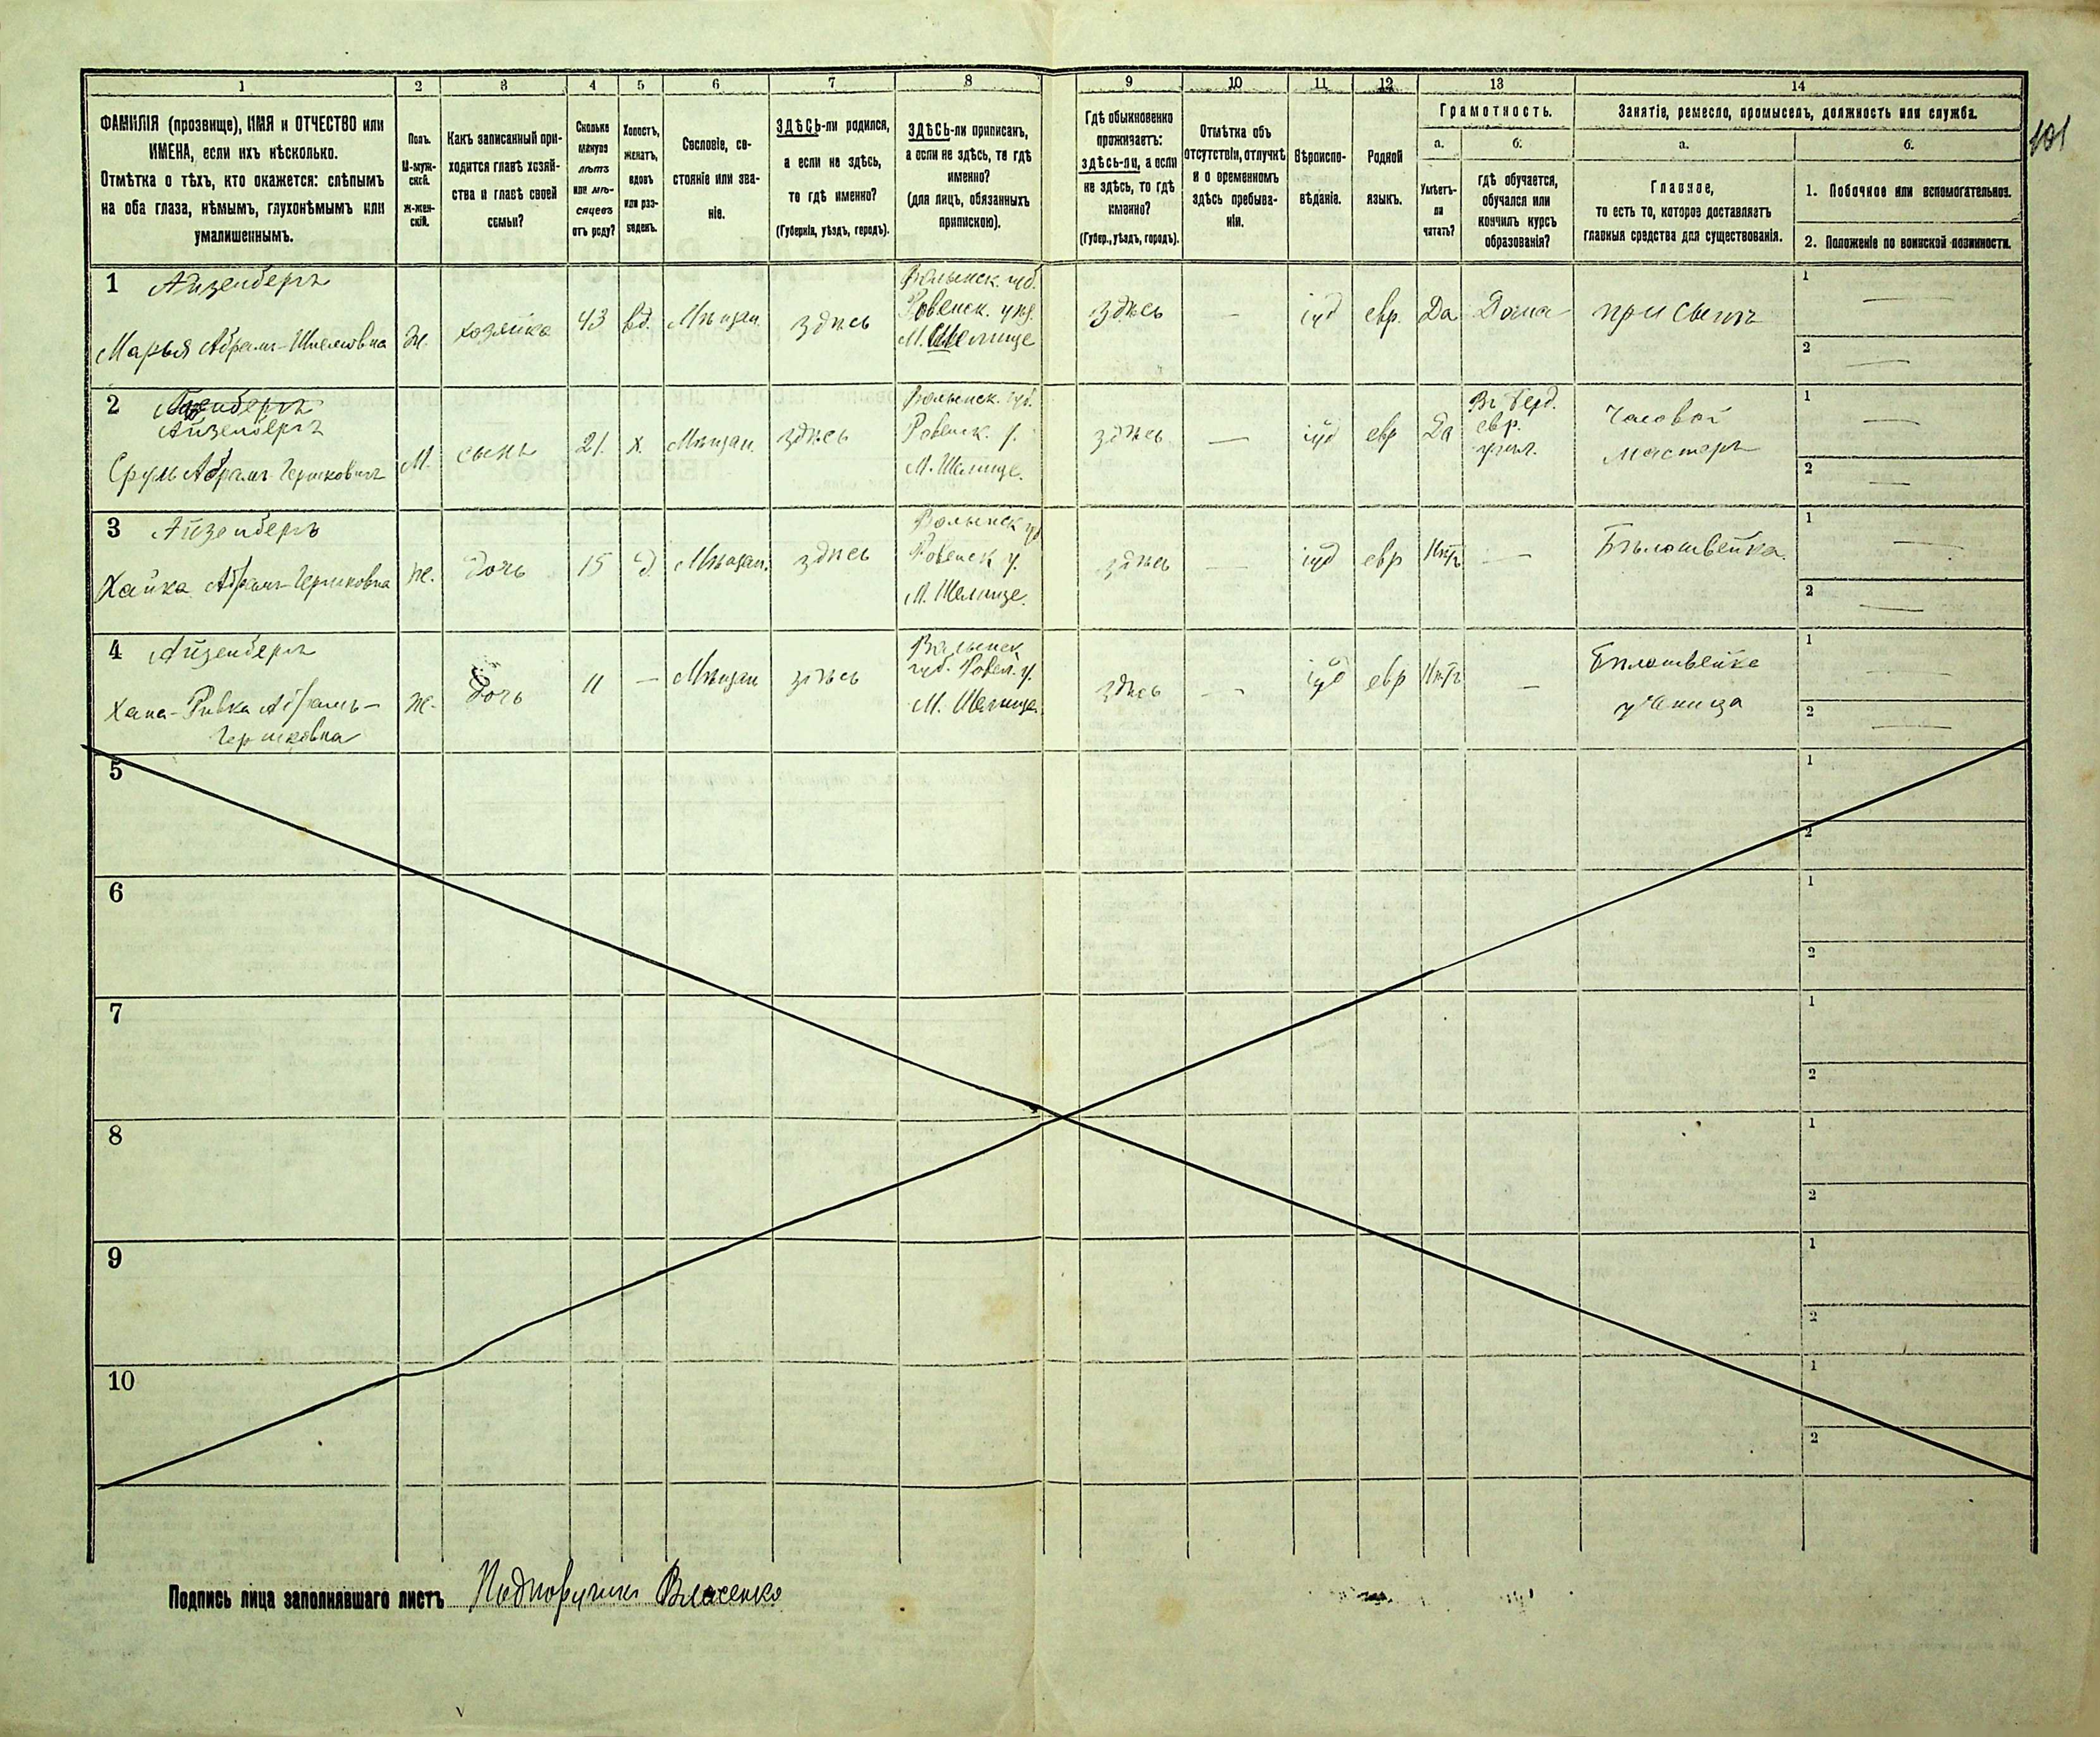 101
1 2 3 4 5 6 7 8 9 10 11 12 13 14
ФАМИЛІЯ (прозвище), ИМЯ и ОТЧЕСТВО или
ИМЕНА, если ихъ нѣсколько.
Отмѣтка о тѣхъ, кто окажется: слѣпымъ
на оба глаза, нѣмымъ, глухонѣмымъ или
умалишеннымъ.
Полъ.
М-муж-
ской.
Ж-жен-
скій.
Какъ записанный при-
ходится главѣ хозяй-
ства и главѣ своей
семьи?
Сколько
минуло
лѣтъ
или мѣ-
сяцевъ
отъ роду?
Холостъ,
женатъ,
вдовъ
или раз-
веденъ.
Сословіе, со-
стояніе или зва-
ніе.
ЗДѢСЬ-ли родился,
а если не здѣсь,
то гдѣ именно?
(Губернія, уѣздъ, городъ).
ЗДѢСЬ-ли приписанъ,
а если не здѣсь, то гдѣ
именно?
(для лицъ, обязанныхъ
припискою).
Гдѣ обыкновенно
проживаетъ:
здѣсь-ли, а если
не здѣсь, то гдѣ
именно?
(Губер., уѣздъ, городъ).
Отмѣтка объ
отсутствіи, отлучкѣ
и о временномъ
здѣсь пребыва-
ніи.
Вѣроиспо-
вѣданіе.
Родной
языкъ.
Грамотность.
а.
Умѣетъ-
ли
читать?
б.
гдѣ обучается,
обучался или
кончилъ курсъ
образованія?
Занятіе, ремесло, промыселъ, должность или служба.
а.
Главное,
то есть то, которое доставляетъ
главныя средства для существованія.
б.
1. Побочное или вспомогательное.
2. Положеніе по воинской повинности.
1
Айзенбергъ
Марья Абрамъ-Шмелювна
Ж.
хозяйка
43
вд.
Мѣщан.
здѣсь
Волынск. губ.
Ровенск. уѣз.
М.
здѣсь
—
іуд
евр.
Да
Дома
при сынѣ
1 —
2 —
2
Айзенбергъ
Сруль Абрамъ-Гершковичъ
М.
сынъ
21.
х.
Мѣщан.
здѣсь
Волынск. губ.
Ровенск. у.
М.
здѣсь
—
іуд
евр
Да
Въ берд.
евр.
учил.
Часовой
мастеръ
1 —
2 —
3
Айзенбергъ
Хайка Абрамъ-Гершковна
ж.
дочь
15
д.
Мѣщан.
здѣсь
Волынск губ
Ровенск у.
М.
здѣсь
—
іуд
евр
Нѣтъ
—
Бѣлошвейка.
1 —
2 —
4
Айзенбергъ
Хана-Ривка Абрамъ-
Гершковна
ж.
дочь
11
—
Мѣщан
здѣсь
Волынск
губ. Ровен. у.
М.
здѣсь
—
іуд
евр
Нѣтъ
—
Бѣлошвейка
ученица
1 —
2 —
5
1
2
6
1
2
7
1
2
8
1
2
9
1
2
10
1
2
Подпись лица заполнявшаго листъ Подпоручикъ Власенко